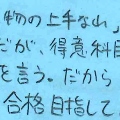 物の上手なれ」
だが、得意科目
を言う。だから
合格目指して